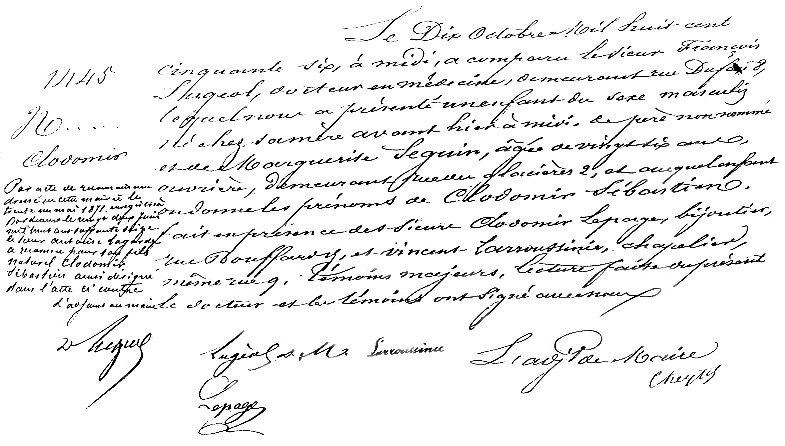 Le Dix Octobre Mil huit cent
cinquante six, à midi, a comparu le sieur François
Lugeol, docteur en médecine, demeurant rue Dufau 8,
lequel nous a présenté un enfant du sexe masculin
né chez sa mère avant hier à midi, de père non nommé
et de Marguerite Seguin, âgée de vingt six ans,
ouvrière, demeurant rue des glacières 2, et auquel enfant
on donne les prénoms de Clodomir Sébastien.
fait en présence des sieurs Clodomir Lepage, bijoutier,
rue Bouffard 7, et vincent Larroussinie, chapelier,
même rue 9, témoins majeurs, lecture faite du présent
le docteur et les témoins ont signé avec nous
1445
N.....
Clodomir
Par acte de reconnaissance
dressé en cette mairie le
trente un mai 1871, enregistré à
Bordeaux le
le sieur antoine Lagarde
a reconnu pour son fils
naturel Clodomir
Sébastien ainsi désigné
dans l'acte ci contre
L'adjoint au maire
Lugeol d. M. Larroussinie
L'adjt de Maire
Lepage